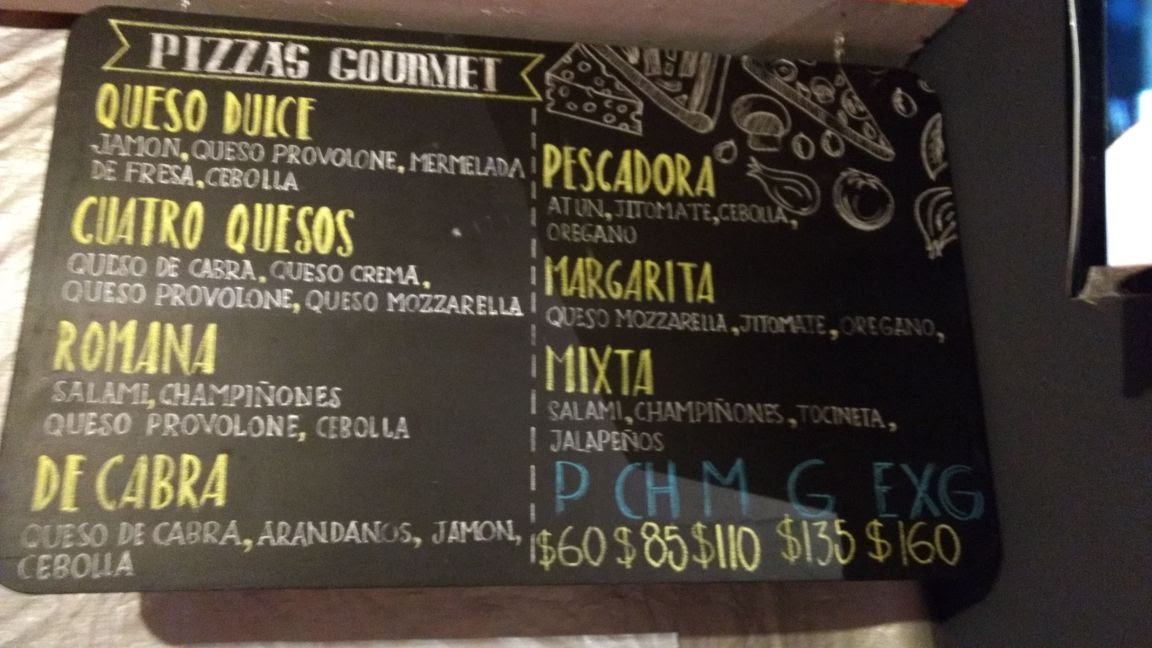 PIZZAS GOURMET
QUESO DULCE
JAMON, QUESO PROVOLONE, MERMELADA
DE FRESA, CEBOLLA
CUATRO QUESOS
QUESO DE CABRA, QUESO CREMA,
QUESO PROVOLONE, QUESO MOZZARELLA
ROMANA
SALAMI, CHAMPIÑONES
QUESO PROVOLONE, CEBOLLA
DE CABRA
QUESO DE CABRA, ARANDANOS, JAMON,
CEBOLLA
PESCADORA
ATUN, JITOMATE, CEBOLLA,
OREGANO
MARGARITA
QUESO MOZZARELLA, JITOMATE, OREGANO,
MIXTA
SALAMI, CHAMPIÑONES, TOCINETA,
JALAPEÑOS
P CH M G EXG
$60 $85 $110 $135 $160